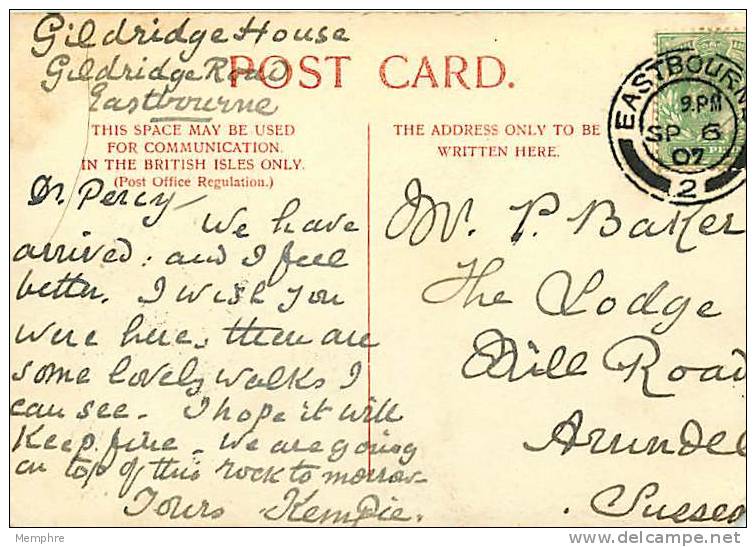 Gildridge House
Gildridge Road
Eastbourne
POST CARD.
THIS SPACE MAY BE USED
FOR COMMUNICATION.
IN THE BRITISH ISLES ONLY.
(Post Office Regulation.)
Dr. Percy—
We have
arrived. and I feel
better. I wish you
were here, there are
some lovely walks I
can see. I hope it will
Keep fine. We are going
on top of this rock to morrow
Yours Kempie.
THE ADDRESS ONLY TO BE
WRITTEN HERE.
EASTBOURNE
9.PM
SP 6
07
2
Mr. P. Baker
The Lodge
Mill Road
Arundel
Sussex
Memphre
delcampe.net